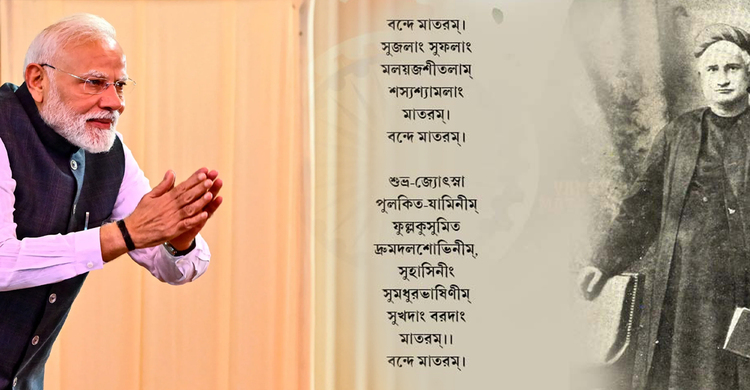 বন্দে মাতরম্।
সুজলাং সুফলাং
মলয়জশীতলাম্
শস্যশ্যামলাং
মাতরম্।
বন্দে মাতরম্।
শুভ্র-জ্যোৎস্না
পুলকিত-যামিনীম্
ফুল্লকুসুমিত
দ্রুমদলশোভিনীম্,
সুহাসিনীং
সুমধুরভাষিণীম্
সুখদাং বরদাং
মাতরম্।।
বন্দে মাতরম্।